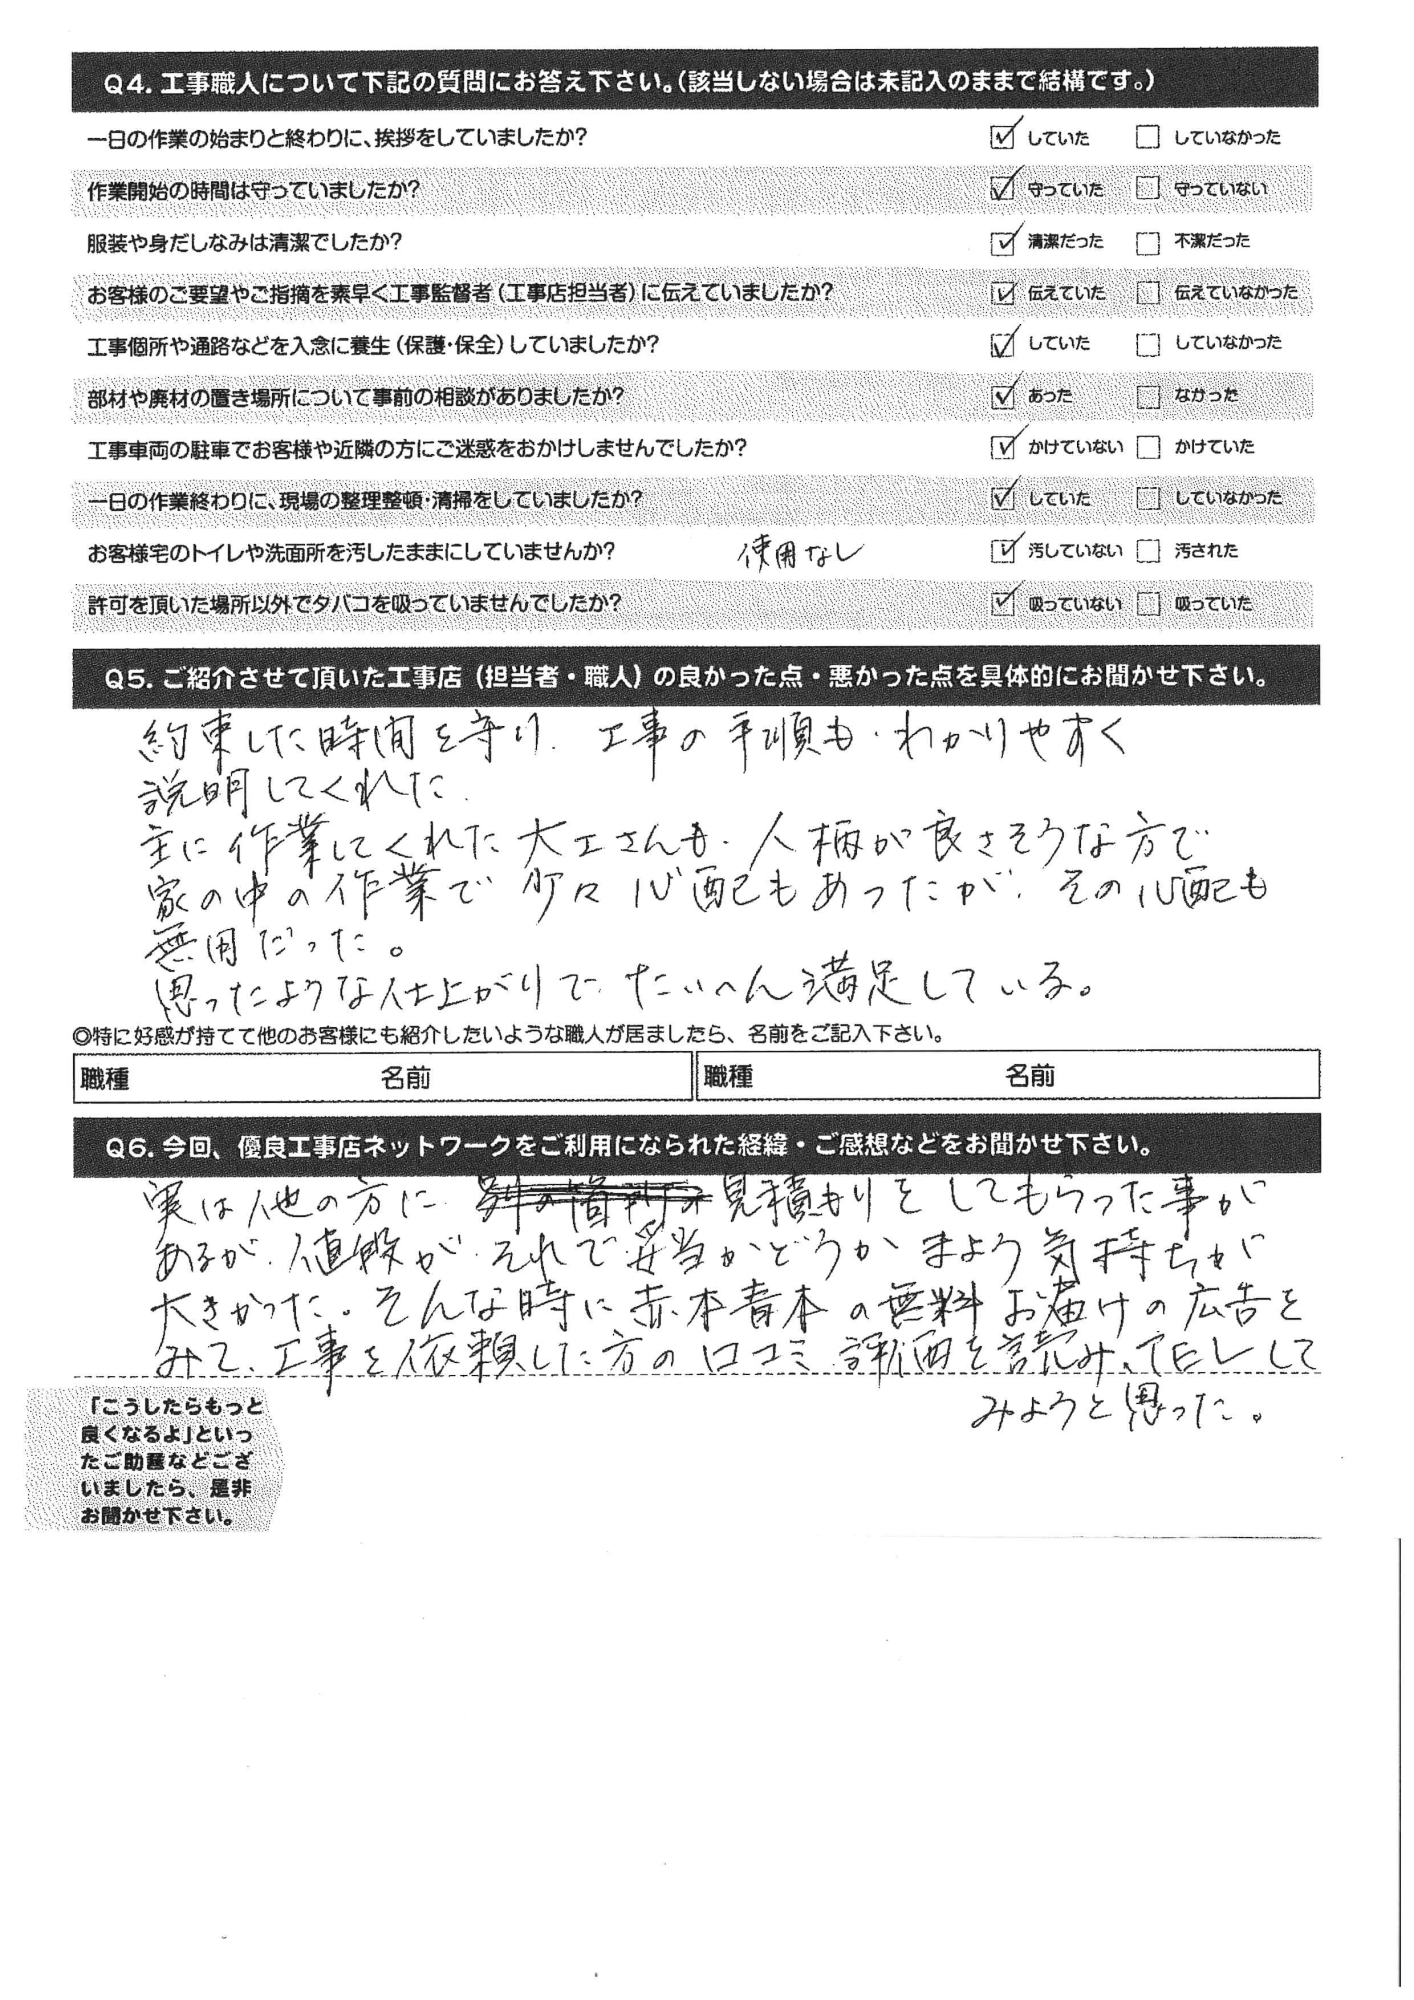 Q4. 工事職人について下記の質問にお答え下さい。(該当しない場合は未記入のままで結構です。)
一日の作業の始まりと終わりに、挨拶をしていましたか? ☑ していた □ していなかった
作業開始の時間は守っていましたか? ☑ 守っていた □ 守っていない
服装や身だしなみは清潔でしたか? ☑ 清潔だった □ 不潔だった
お客様のご要望やご指摘を素早く工事監督者(工事店担当者)に伝えていましたか? ☑ 伝えていた □ 伝えていなかった
工事個所や通路などを入念に養生(保護・保全)していましたか? ☑ していた □ していなかった
部材や廃材の置き場所について事前の相談がありましたか? ☑ あった □ なかった
工事車両の駐車でお客様や近隣の方にご迷惑をおかけしませんでしたか? ☑ かけていない □ かけていた
一日の作業終わりに、現場の整理整頓・清掃をしていましたか? ☑ していた □ していなかった
お客様宅のトイレや洗面所を汚したままにしていませんか? 使用なし ☑ 汚していない □ 汚された
許可を頂いた場所以外でタバコを吸っていませんでしたか? ☑ 吸っていない □ 吸っていた
Q5. ご紹介させて頂いた工事店(担当者・職人)の良かった点・悪かった点を具体的にお聞かせ下さい。
約束した時間を守り、工事の手順も、わかりやすく
説明してくれた。
主に作業してくれた大工さんも、人柄が良さそうな方で
家の中の作業で少々心配もあったが、その心配も
無用だった。
思ったような仕上がりで、たいへん満足している。
◎特に好感が持てて他のお客様にも紹介したいような職人が居ましたら、名前をご記入下さい。
職種 名前 職種 名前
Q6. 今回、優良工事店ネットワークをご利用になられた経緯・ご感想などをお聞かせ下さい。
実は他の方に 見積もりをしてもらった事が
あるが、値段が、それで妥当かどうかまよう気持ちが
大きかった。そんな時に赤本青本の無料お届けの広告を
みて、工事を依頼した方の口コミ評価を読み、TELして
みようと思った。
「こうしたらもっと
良くなるよ」といっ
たご助言などござ
いましたら、是非
お聞かせ下さい。